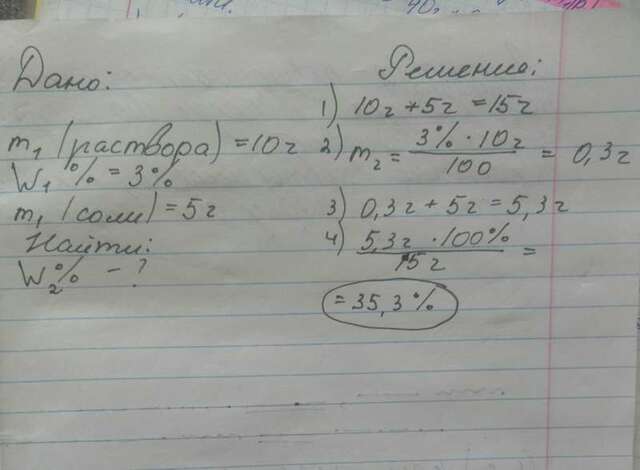 Дано:
m₁ (раствора) = 10г
W₁ % = 3%
m₁ (соли) = 5г
Найти:
W₂% - ?
Решение:
1) 10г + 5г = 15г
2) m₂ = 3% · 10г / 100 = 0,3г
3) 0,3г + 5г = 5,3г
4) 5,3г · 100% / 15г =
= 35,3%